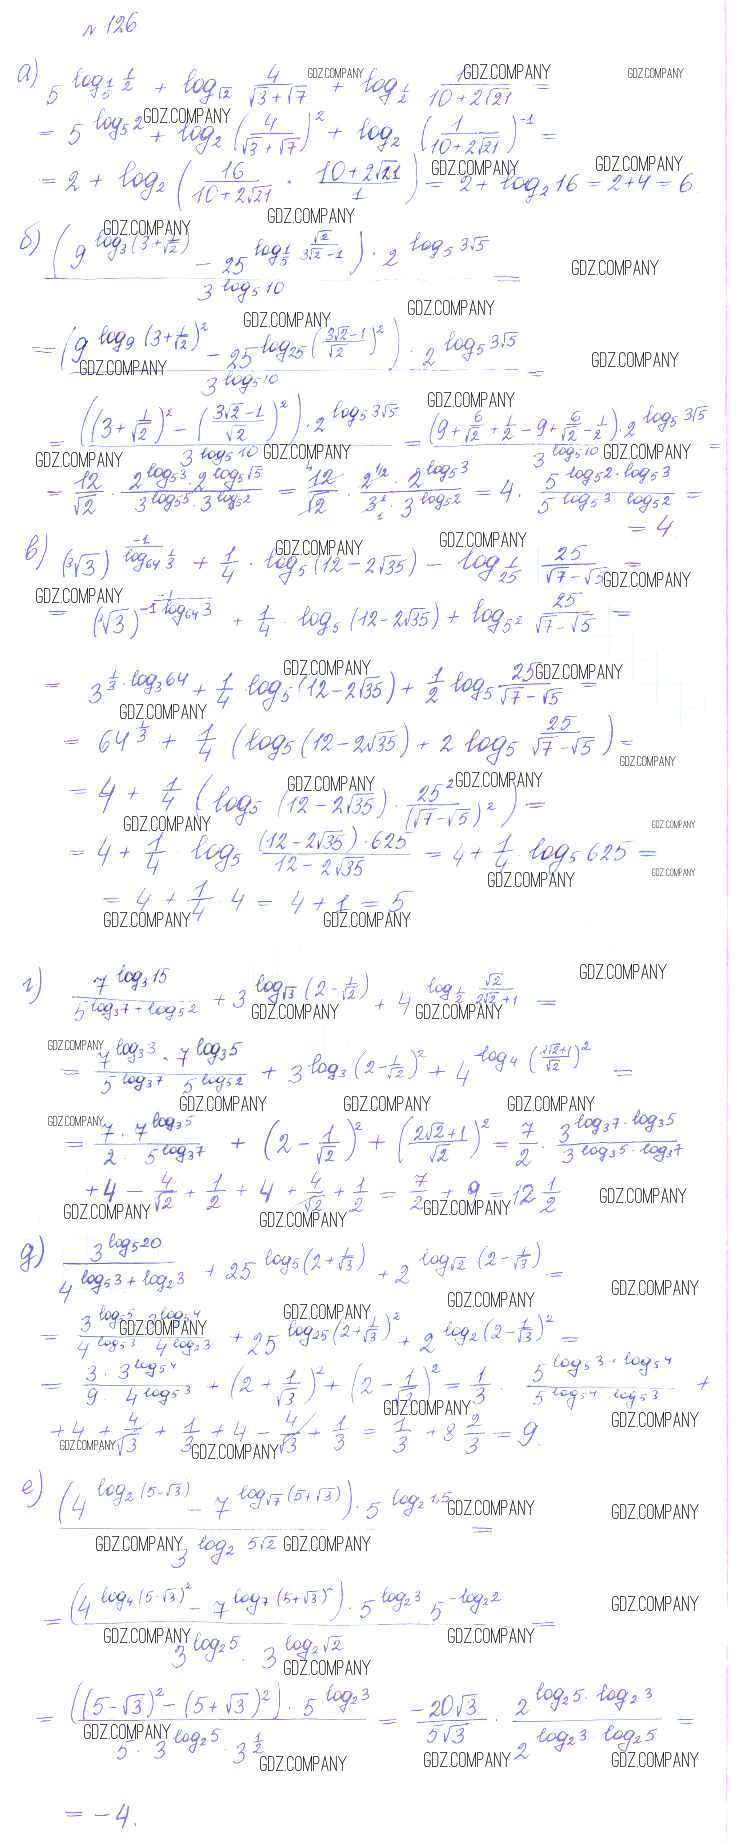 № 126
а) 5^(log_(1/5) 1/2) + log_√2 4/(√3+√7) + log_(1/2) 1/(10+2√21) =
= 5^(log_5 2) + log_2 (4/(√3+√7))^2 + log_2 (1/(10+2√21))^-1 =
= 2 + log_2 (16/(10+2√21) · (10+2√21)/1) = 2 + log_2 16 = 2+4 = 6.
б) ((9^(log_3 (3+1/√2)) - 25^(log_(1/5) √2/(3√2-1))) · 2^(log_5 3√5))/(3^(log_5 10)) =
= ((9^(log_9 (3+1/√2)^2) - 25^(log_25 ((3√2-1)/√2)^2)) · 2^(log_5 3√5))/(3^(log_5 10)) =
= (((3+1/√2)^2 - ((3√2-1)/√2)^2) · 2^(log_5 3√5))/(3^(log_5 10)) = ((9+6/√2+1/2-9+6/√2-1/2) · 2^(log_5 3√5))/(3^(log_5 10)) =
= 12/√2 · (2^(log_5 3) · 2^(log_5 √5))/(3^(log_5 5) · 3^(log_5 2)) = 12/√2 · (2^(1/2) · 2^(log_5 3))/(3 · 3^(log_5 2)) = 4 · (5^(log_5 2 · log_5 3))/(5^(log_5 3 · log_5 2)) =
= 4
в) (³√3)^(-1/(log_64 1/3)) + 1/4 · log_5 (12-2√35) - log_(1/25) 25/(√7-√5) =
= (³√3)^(-1/(-1 log_64 3)) + 1/4 · log_5 (12-2√35) + log_(5^2) 25/(√7-√5) =
= 3^(1/3 · log_3 64) + 1/4 log_5 (12-2√35) + 1/2 log_5 25/(√7-√5) =
= 64^(1/3) + 1/4 (log_5 (12-2√35) + 2 log_5 25/(√7-√5)) =
= 4 + 1/4 (log_5 (12-2√35) · 25^2/(√7-√5)^2) =
= 4 + 1/4 · log_5 ((12-2√35) · 625)/(12-2√35) = 4 + 1/4 · log_5 625 =
= 4 + 1/4 · 4 = 4 + 1 = 5
г) 7^(log_3 15)/(5^(log_3 7 + log_5 2)) + 3^(log_√3 (2-1/√2)) + 4^(log_(1/2) √2/(2√2+1)) =
= (7^(log_3 3) · 7^(log_3 5))/(5^(log_3 7) · 5^(log_5 2)) + 3^(log_3 (2-1/√2)^2) + 4^(log_4 ((2√2+1)/√2)^2) =
= (7 · 7^(log_3 5))/(2 · 5^(log_3 7)) + (2-1/√2)^2 + ((2√2+1)/√2)^2 = 7/2 · (3^(log_3 7 · log_3 5))/(3^(log_3 5 · log_3 7))
+ 4 - 4/√2 + 1/2 + 4 + 4/√2 + 1/2 = 7/2 + 9 = 12 1/2
д) 3^(log_5 20)/(4^(log_5 3 + log_2 3)) + 25^(log_5 (2+1/√3)) + 2^(log_√2 (2-1/√3)) =
= (3^(log_5 5) · 3^(log_5 4))/(4^(log_5 3) · 4^(log_2 3)) + 25^(log_25 (2+1/√3)^2) + 2^(log_2 (2-1/√3)^2) =
= (3 · 3^(log_5 4))/(9 · 4^(log_5 3)) + (2+1/√3)^2 + (2-1/√3)^2 = 1/3 · (5^(log_5 3 · log_5 4))/(5^(log_5 4 · log_5 3)) +
+ 4 + 4/√3 + 1/3 + 4 - 4/√3 + 1/3 = 1/3 + 8 2/3 = 9.
е) ((4^(log_2 (5-√3)) - 7^(log_√7 (5+√3))) · 5^(log_2 1,5))/(3^(log_2 5√2)) =
= ((4^(log_4 (5-√3)^2) - 7^(log_7 (5+√3)^2)) · 5^(log_2 3) · 5^(-log_2 2))/(3^(log_2 5) · 3^(log_2 √2)) =
= (((5-√3)^2 - (5+√3)^2) · 5^(log_2 3))/(5 · 3^(log_2 5) · 3^(1/2)) = -20√3/5√3 · (2^(log_2 5 · log_2 3))/(2^(log_2 3 · log_2 5)) =
= -4.